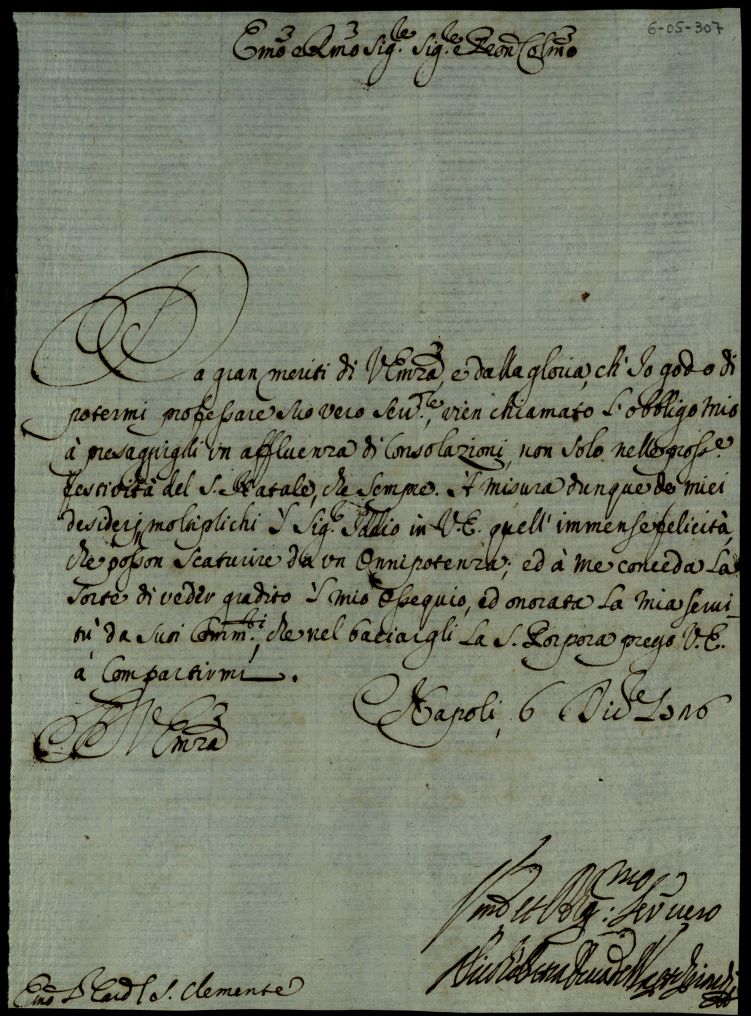 6-05-307
Emo e Rmo Sig.re Sig.re e Pron Colmo
Da gran meriti di V Emza, e dalla gloria, ch' Io godo di
potermi professare suo vero Serv.re, vien chiamato l' obbligo mio
à presaguigli un affluenza di Consolazioni, non solo nelle pross.e
festività del S. Natale, che sempre. A misura dunque de miei
desiderj, moltiplichi Il Sig.r Iddio in V.E. quell' immense felicità,
che posson scaturire da un Onnipotenza; ed à me conceda la
sorte di veder gradito Il mio Ossequio, ed onorata la mia servi-
tù da suoi Comm.ti, che nel baciargli la S. Porpora prego V.E.
à Compartirmi.
Napoli, 6 Dic.re
D V Emza
Serv vero
Emo S. Clemente